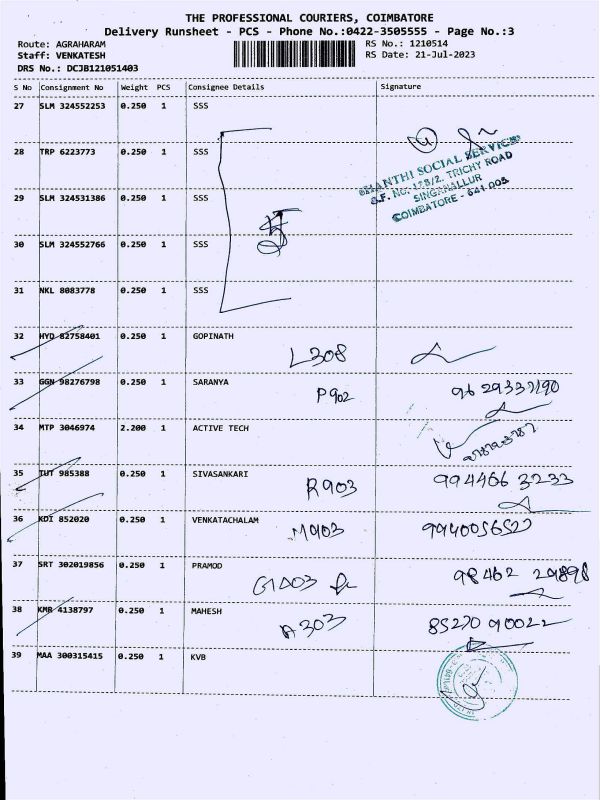 THE PROFESSIONAL COURIERS, COIMBATORE
Delivery Runsheet - PCS - Phone No.:0422-3505555 - Page No.:3
Route: AGRAHARAM RS No.: 1210514
Staff: VENKATESH RS Date: 21-Jul-2023
DRS No.: DCJB121051403
S No Consignment No Weight PCS Consignee Details Signature
27 SLM 324552253 0.250 1 SSS
28 TRP 6223773 0.250 1 SSS
SHANTHI SOCIAL SERVICE
S.F. NO: 128/2, TRICHY ROAD
SINGANALLUR
COIMBATORE - 641 005
29 SLM 324531386 0.250 1 SSS
30 SLM 324552766 0.250 1 SSS
31 NKL 8083778 0.250 1 SSS
32 HYD 82758401 0.250 1 GOPINATH
L308
33 GGN 98276798 0.250 1 SARANYA
P902
34 MTP 3046974 2.200 1 ACTIVE TECH
35 TUT 985388 0.250 1 SIVASANKARI
R903 994466 3233
36 KDI 852020 0.250 1 VENKATACHALAM
M903
37 SRT 302019856 0.250 1 PRAMOD
G1A03 98462 29898
38 KMR 4138797 0.250 1 MAHESH
A303 85270 90022
39 MAA 300315415 0.250 1 KVB